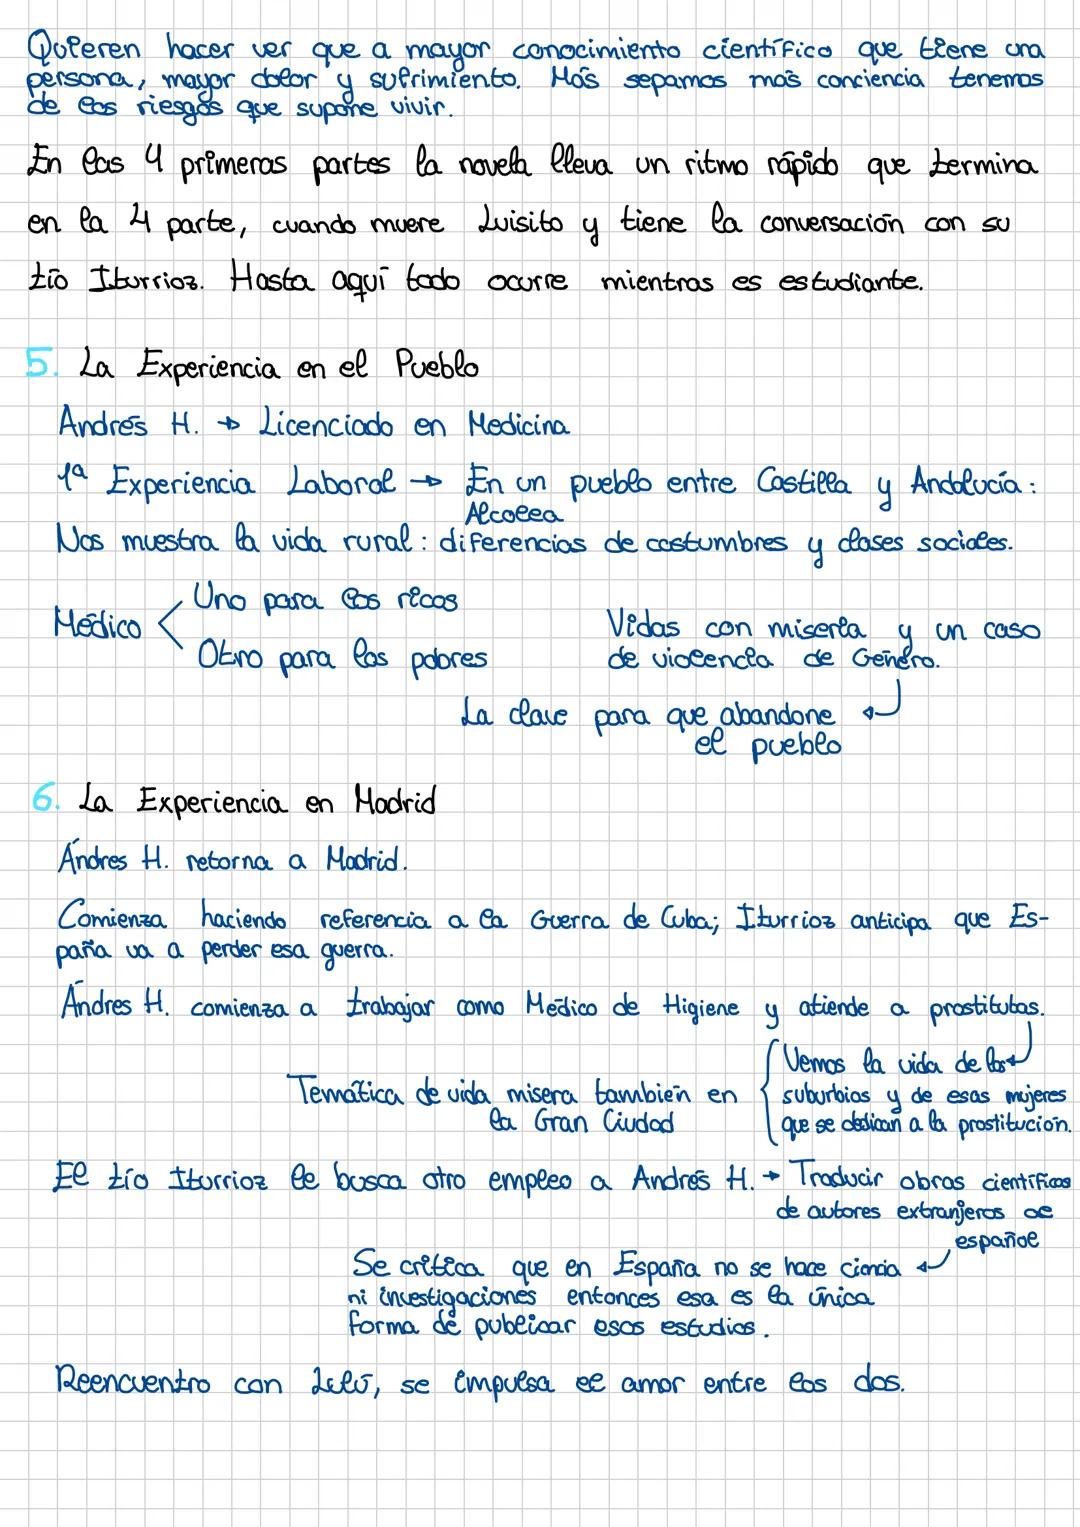 Quieren hacer ver que a mayor conocimiento científico que tiene una
persona, mayor dolor y sufrimiento. Más sepamos más conciencia tenemos
de los riesgos que supone vivir.
En las 4 primeras partes la novela lleva un ritmo rápido que termina
en la 4 parte, cuando muere Luisito y tiene la conversación con su
tío Iturrioz. Hasta aquí todo ocurre mientras es estudiante.
5. La Experiencia en el Pueblo
Andrés H. → Licenciado en Medicina
1ª Experiencia Laboral → En un pueblo entre Castilla y Andalucía:
Alcolea
Nos muestra la vida rural: diferencias de costumbres y clases sociales.
Médico < Uno para los ricos
Otro para los pobres
Vidas con miseria y un caso
de violencia de Género.
La clave para que abandone
el pueblo
6. La Experiencia en Madrid
Ándres H. retorna a Madrid.
Comienza haciendo referencia a la Guerra de Cuba; Iturrioz anticipa que Es-
paña va a perder esa guerra.
Ándres H. comienza a trabajar como Médico de Higiene y atiende a prostitutas.
Temática de vida misera también en
la Gran Ciudad
Vemos la vida de los
suburbios y de esas mujeres
que se dedican a la prostitución.
El tío Iturrioz le busca otro empleo a Andrés H. → Traducir obras científicas
de autores extranjeros al
español
Se critica que en España no se hace ciencia
ni investigaciones entonces esa es la única
forma de publicar esos estudios.
Reencuentro con Lulú, se impulsa el amor entre los dos.